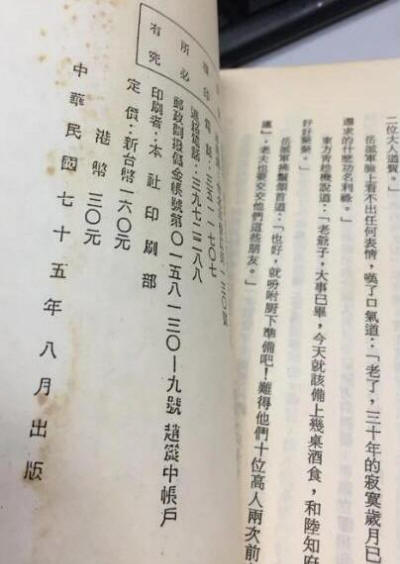 二位大人道賀。」
岳孤軍臉上看不出任何表情,嘆了口氣道:「老了,三十年的寂寞歲月已
還求的什麼功名利祿。」
東方青趁機說道:「老爺子,大事已畢,今天就該備上幾桌酒食,和陸知府
好好樂樂。」
岳孤軍拂鬚頷首道:「也好,就吩咐厨下準備吧!難得他們十位高人兩次前
老夫也要交交他們這些朋友。」
電話:三五一一七〇七
連絡電話:三九七二二八八
郵政劃撥儲金帳號第〇一五八一三〇—九號 趙震中帳戶
印刷者:本社印刷部
定價:新台幣一六〇元
港幣三〇元
印必究
所有
中華民國七十五年八月出版